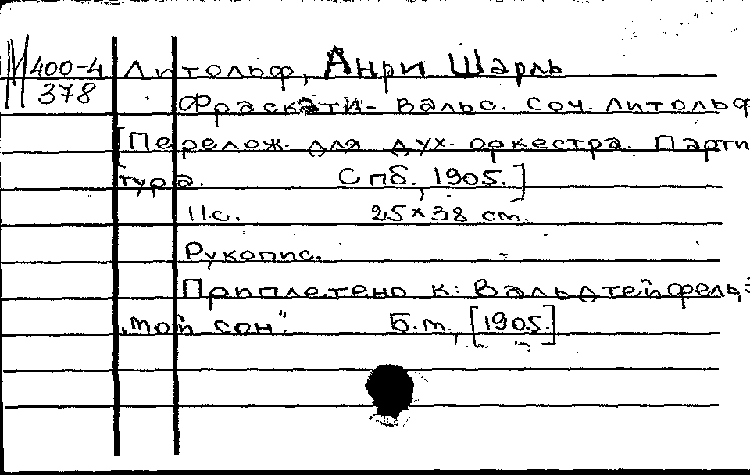 М 400-4 Литольф, Анри Шарль
378 Фраскати - вальс. Соч. Литольф
[Перелож. для дух. оркестра. Парти
тура. Спб., 1905.]
11с. 25×38 см.
Рукопис.
Приплетено к: Вальдтейфель, Э
„Мой сон". Б.м., [1905.]